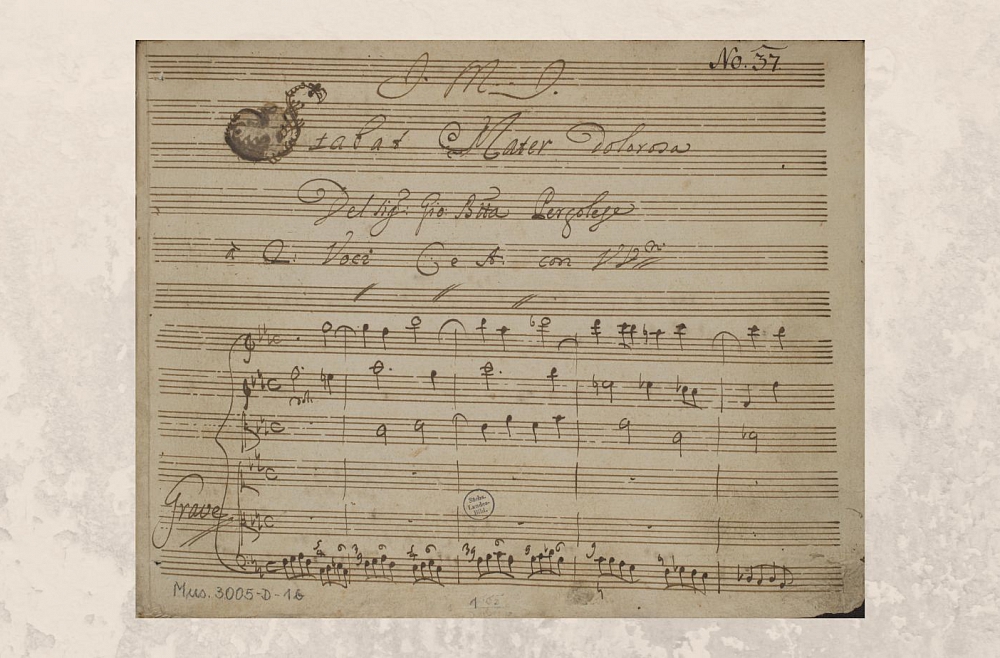 No. 37
J. M. J.
Stabat Mater dolorosa
Del Sigr. Gio Btta Pergolese
à 2: Voci C e A: con VVni
Grave
Sächs.
Landes-
Bibl.
Mus. 3005-D-1b
1